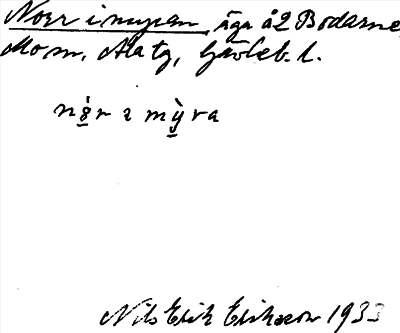 Norr i myran, äga å 2 Bodarne,
Mom, Gävleb. l.
nòr ı mỳra
Nils Erik Eriksson 1933